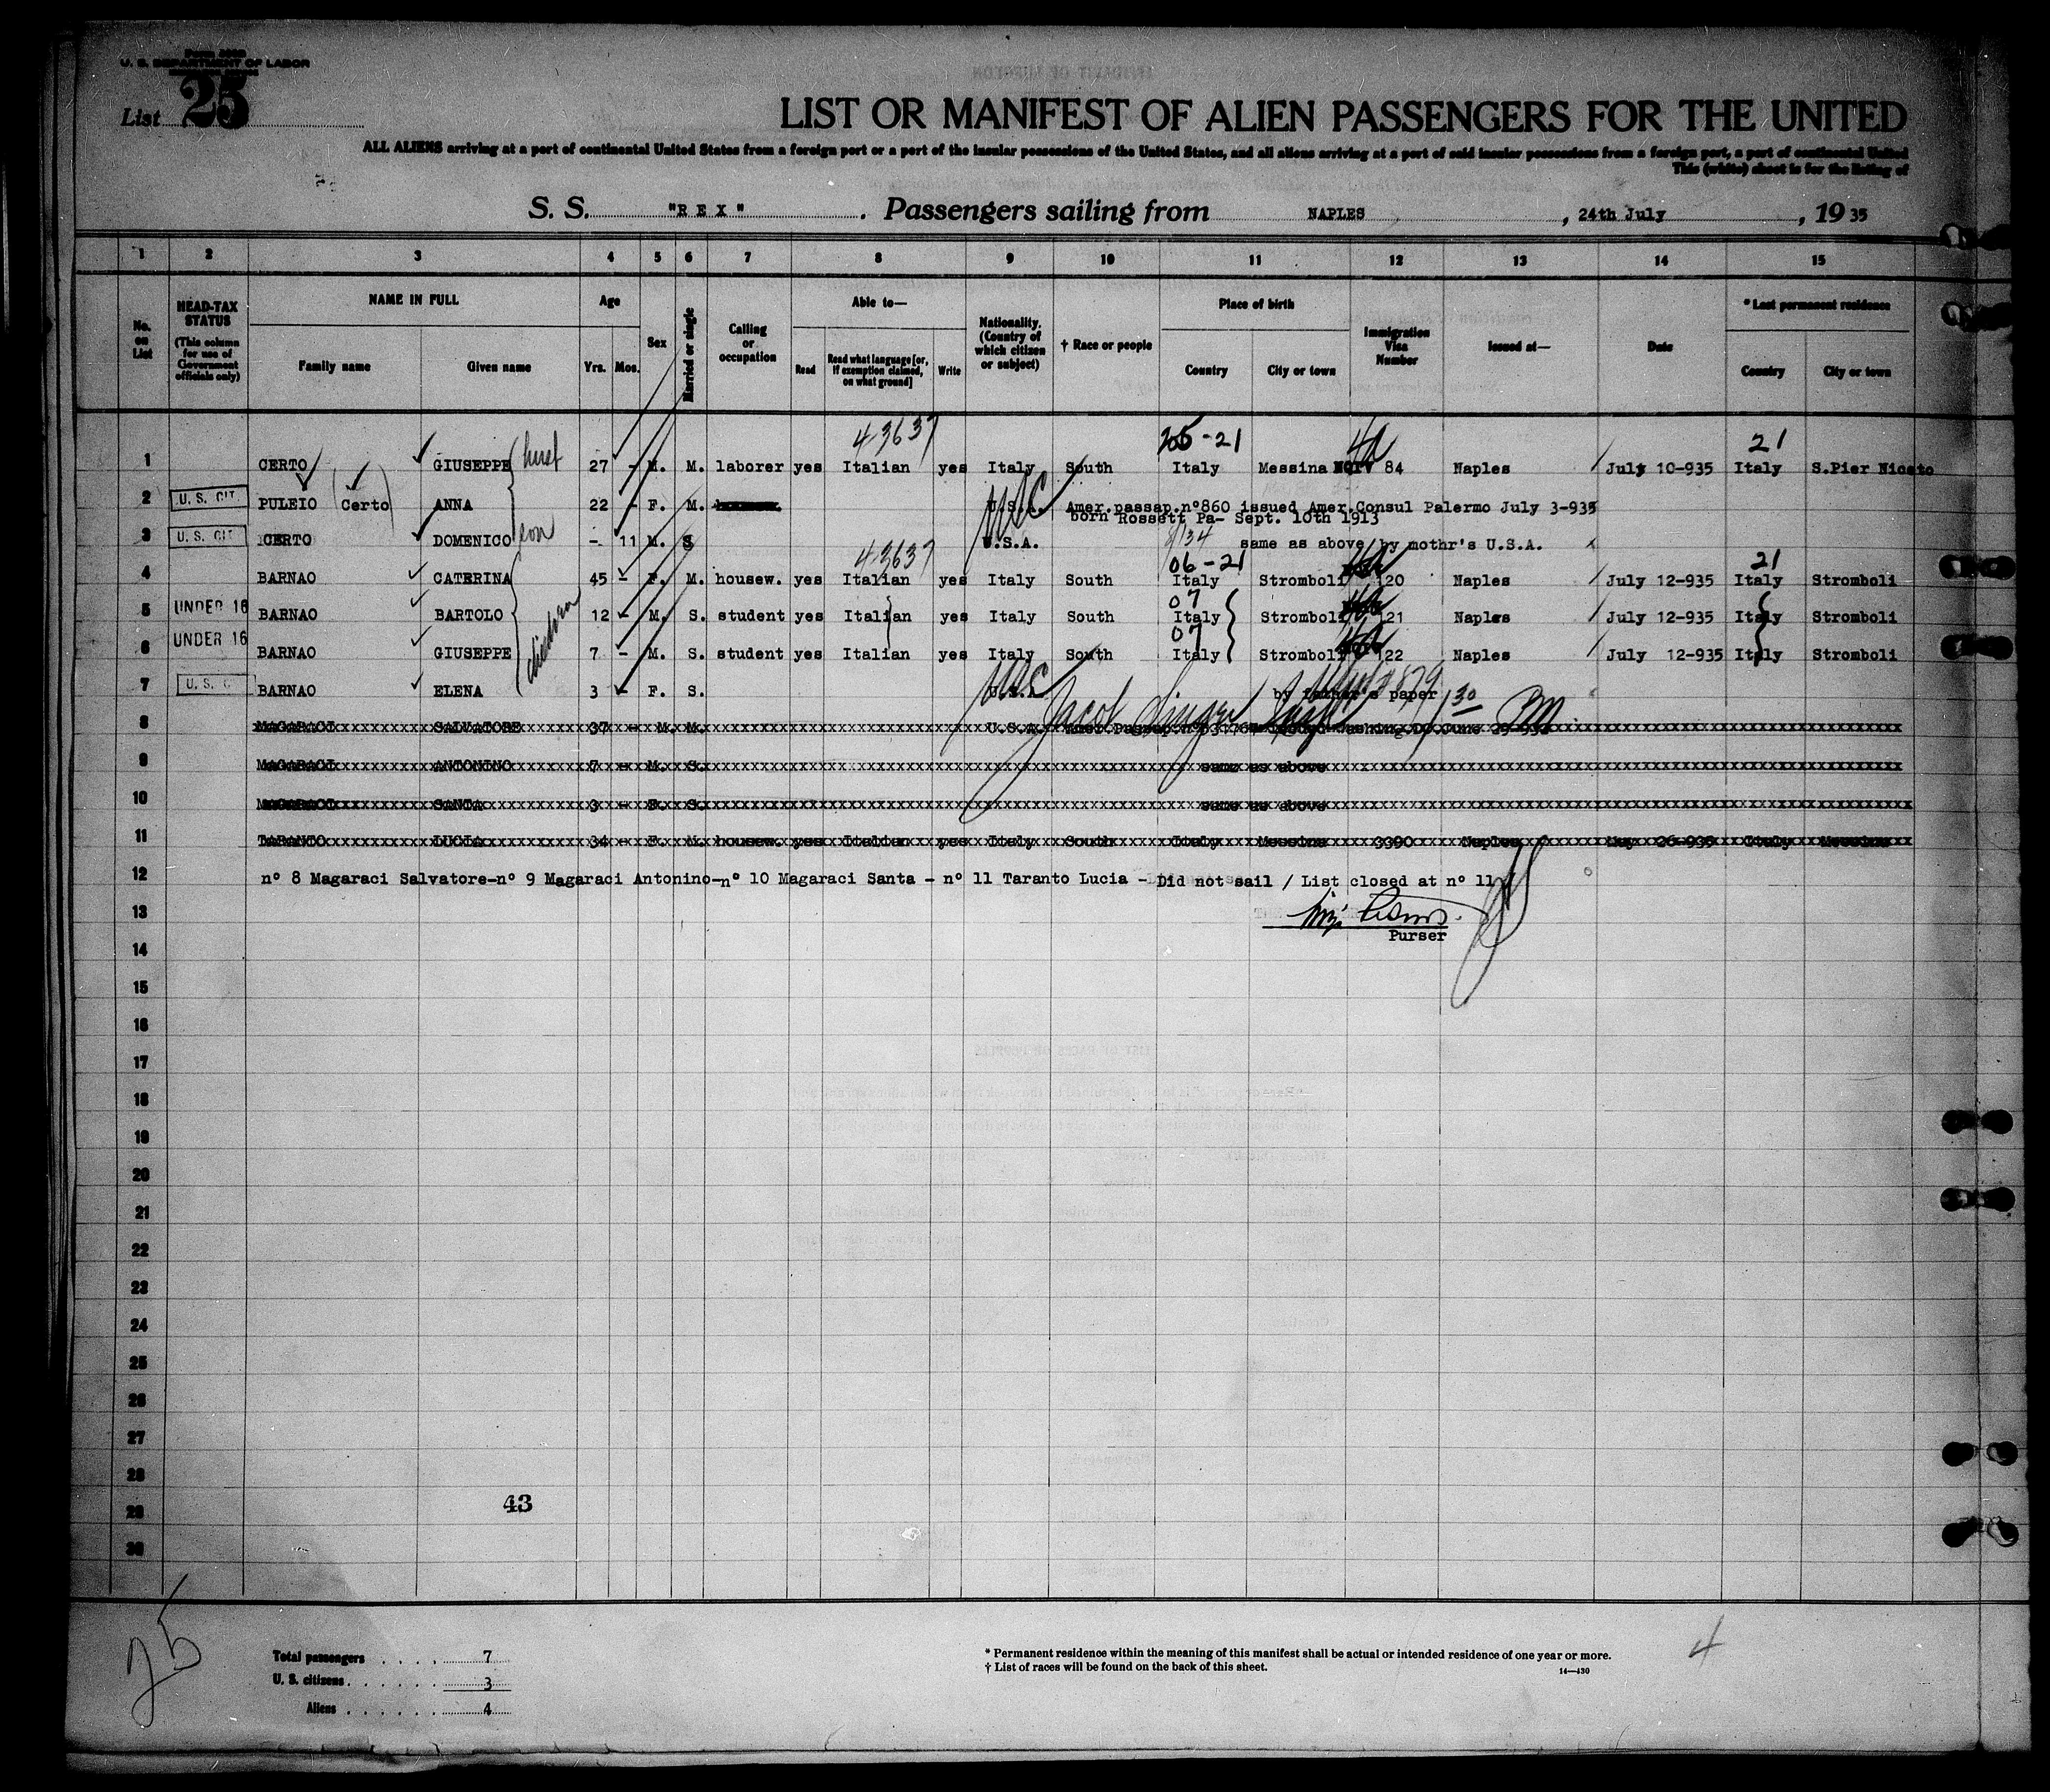 Form 500
U. S. DEPARTMENT OF LABOR
List 25
LIST OR MANIFEST OF ALIEN PASSENGERS FOR THE UNITED
ALL ALIENS arriving at a port of continental United States from a foreign port or a port of the insular possessions of the United States, and all aliens arriving at a port of said insular possessions from a foreign port, a port of continental United
This (white) sheet is for the listing of
S. S. "R E X". Passengers sailing from NAPLES, 24th July, 19 35
1 2 3 4 5 6 7 8 9 10 11 12 13 14 15
No. on List
HEAD-TAX STATUS (This column for use of Government officials only)
NAME IN FULL Family name Given name
Age Yrs. Mos.
Sex
Married or single
Calling or occupation
Able to— Read Read what language [or, if exemption claimed, on what ground] Write
Nationality. (Country of which citizen or subject)
† Race or people
Place of birth Country City or town
Immigration Visa Number
Issued at—
Date
* Last permanent residence Country City or town
43637 205-21 21
1 CERTO GIUSEPPE 27 - M. M. laborer yes Italian yes Italy South Italy Messina 84 Naples July 10-935 Italy S.Pier Niceto
2 U. S. CIT. PULEIO (Certo) ANNA 22 - F. M. U.S.A. Amer.passap.nº860 issued Amer.Consul Palermo July 3-935
born Rossett Pa- Sept. 10th 1913
3 U. S. CIT CERTO DOMENICO son - 11 M. S U.S.A. 8/34 same as above by mothr's U.S.A.
43637 06-21 21
4 BARNAO CATERINA 45 - F. M. housew. yes Italian yes Italy South Italy Stromboli 20 Naples July 12-935 Italy Stromboli
07
5 UNDER 16 BARNAO BARTOLO children 12 - M. S. student yes Italian yes Italy South Italy Stromboli 21 Naples July 12-935 Italy Stromboli
07
6 UNDER 16 BARNAO GIUSEPPE 7 - M. S. student yes Italian yes Italy South Italy Stromboli 22 Naples July 12-935 Italy Stromboli
7 U. S. C BARNAO ELENA 3 - F. S. U.S.A by father's paper
Jacob Singer
8 MAGARACI SALVATORE 37 - M. M. U.S.A. Amer.Passap.nº
9 MAGARACI ANTONINO 7 - M. S. same as above
10 MAGARACI SANTA 3 - F. S. same as above
11 TARANTO LUCIA 34 - F. M. housew. yes Italian yes Italy South Italy Messina 3390 Naples May 26-935 Italy Messina
12 nº 8 Magaraci Salvatore-nº 9 Magaraci Antonino-nº 10 Magaraci Santa - nº 11 Taranto Lucia - Did not sail / List closed at nº 11
13
Purser
14
15
16
17
18
19
20
21
22
23
24
25
26
27
28
29
30
43
25
Total passengers . . . . 7
U. S. citizens . . . . . . 3
Aliens . . . . . . 4
* Permanent residence within the meaning of this manifest shall be actual or intended residence of one year or more.
† List of races will be found on the back of this sheet.
14—430
4